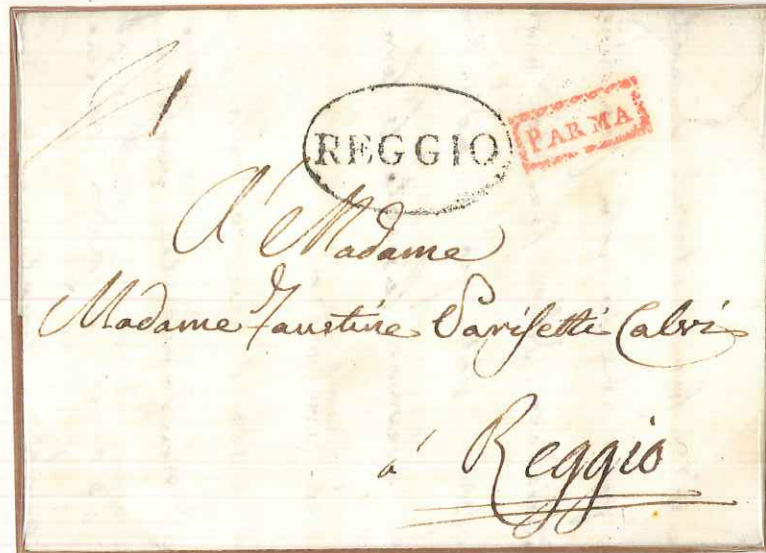 REGGIO PARMA
A Madame
Madame Faustine Parisetti Calvi
à Reggio